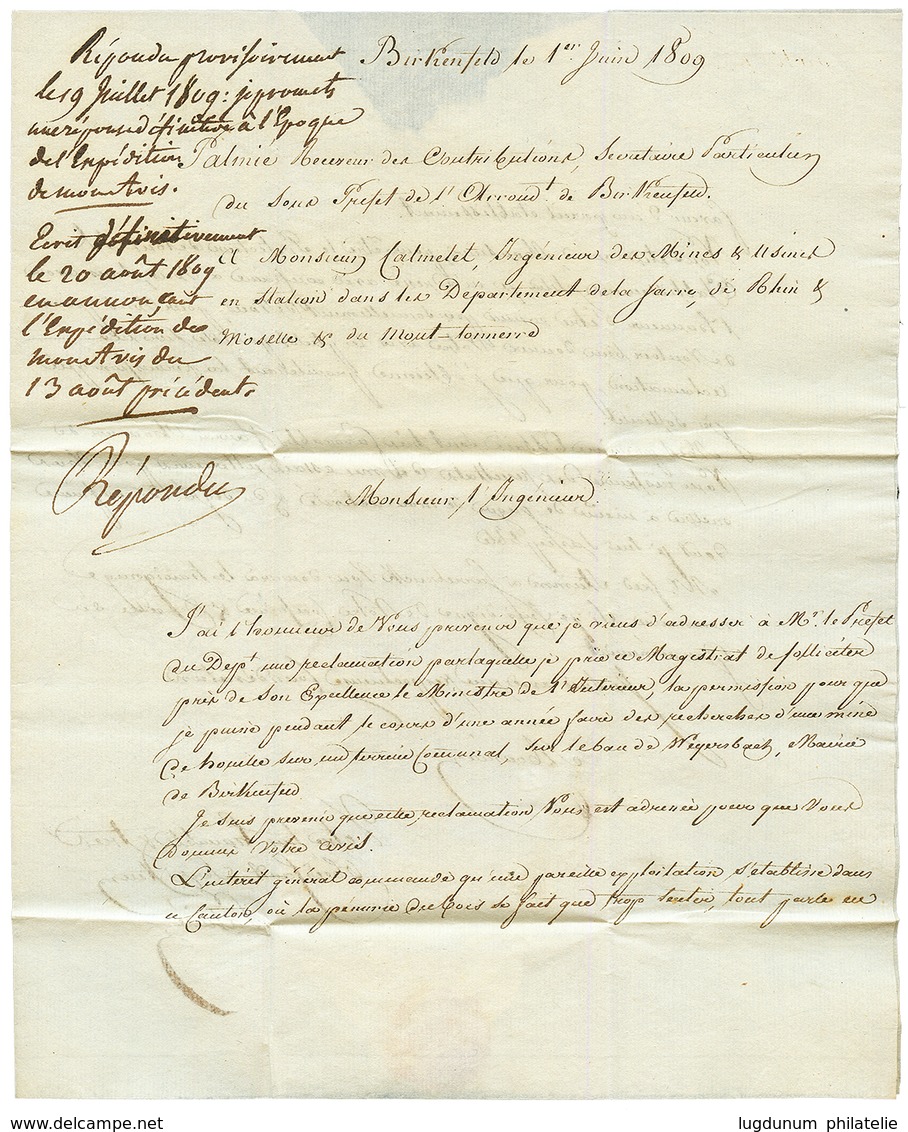 Birkenfeld le 1er Juin 1809
Répondu provisoirement
le 19 Juillet 1809: je promets
une réponse définitive à l'Epoque
de l'Expédition
de mon Avis.
Ecrit définitivement
le 20 août 1809
en annonçant
l'Expédition de
mon Avis du
13 août précédent.
Répondu
Palmié Receveur des Contributions, Secretaire Particulier
du Sous Prefet de l'Arrondt. de Birkenfeld.
A Monsieur Calmelet, Ingénieur des Mines & Usines
en Station dans les Département de la Sarre, de Rhin &
Moselle & du Mont-tonnerre
Monsieur l'Ingénieur.
J'ai l'honneur de Vous prevenir que je viens d'adresser à Mr. le Préfet
du Dept. une reclamation par laquelle je prie ce Magistrat de solliciter
près de Son Excellence le Ministre de l'Interieur, la permission pour que
je puisse pendant le cours d'une année faire des recherches d'une mine
de houille sur un terrein Communal, sur le ban de Wegersbach, Mairie
de Birkenfeld
Je suis prevenu que cette reclamation Vous est adressée pour que Vous
Donniez Votre avis.
L'intérêt général commande qu'une pareille exploitation s'etablisse dans
ce Canton, où la pénurie de bois se fait que trop sentir, tout parle en
lugdunum philatelie